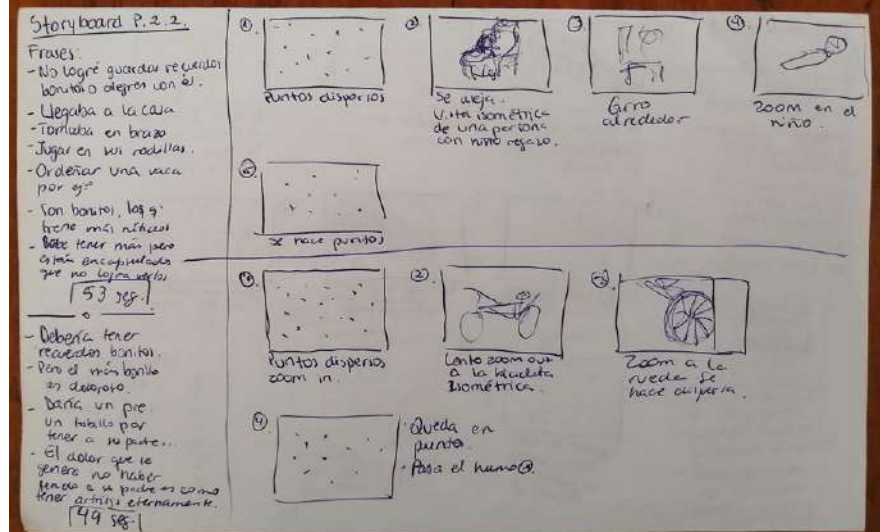 Storyboard P.2.2.
Frases:
- No logré guardar recuerdos
bonitos o alegres con él.
- Llegaba a la casa
- Tomaba en brazo
- Jugar en sus rodillas.
- Ordeñar una vaca
por ej:
- Son bonitos, los q'
tiene más nítidos
- Debe tener más pero
están encapsulados
que no logra verlos
53 seg.
- Debería tener
recuerdos bonitos.
- Pero el más bonito
es doloroso.
- Daría un pie
un tobillo por
tener a su padre...
- El dolor que le
genera no haber
tenido a su padre es como
tener artritis eternamente.
49 seg.
①.
Puntos dispersos
②
Se aleja.
Vista isométrica
de una persona
con niño regazo.
③
Giro
alrededor
④
Zoom en el
niño.
⑤.
Se hace puntos
①.
Puntos dispersos
zoom in.
②.
Lento zoom out
a la bicicleta
Isométrica.
③.
Zoom a la
rueda se
hace dispersa.
④
· Queda en
puntos.
· Pasa el humo